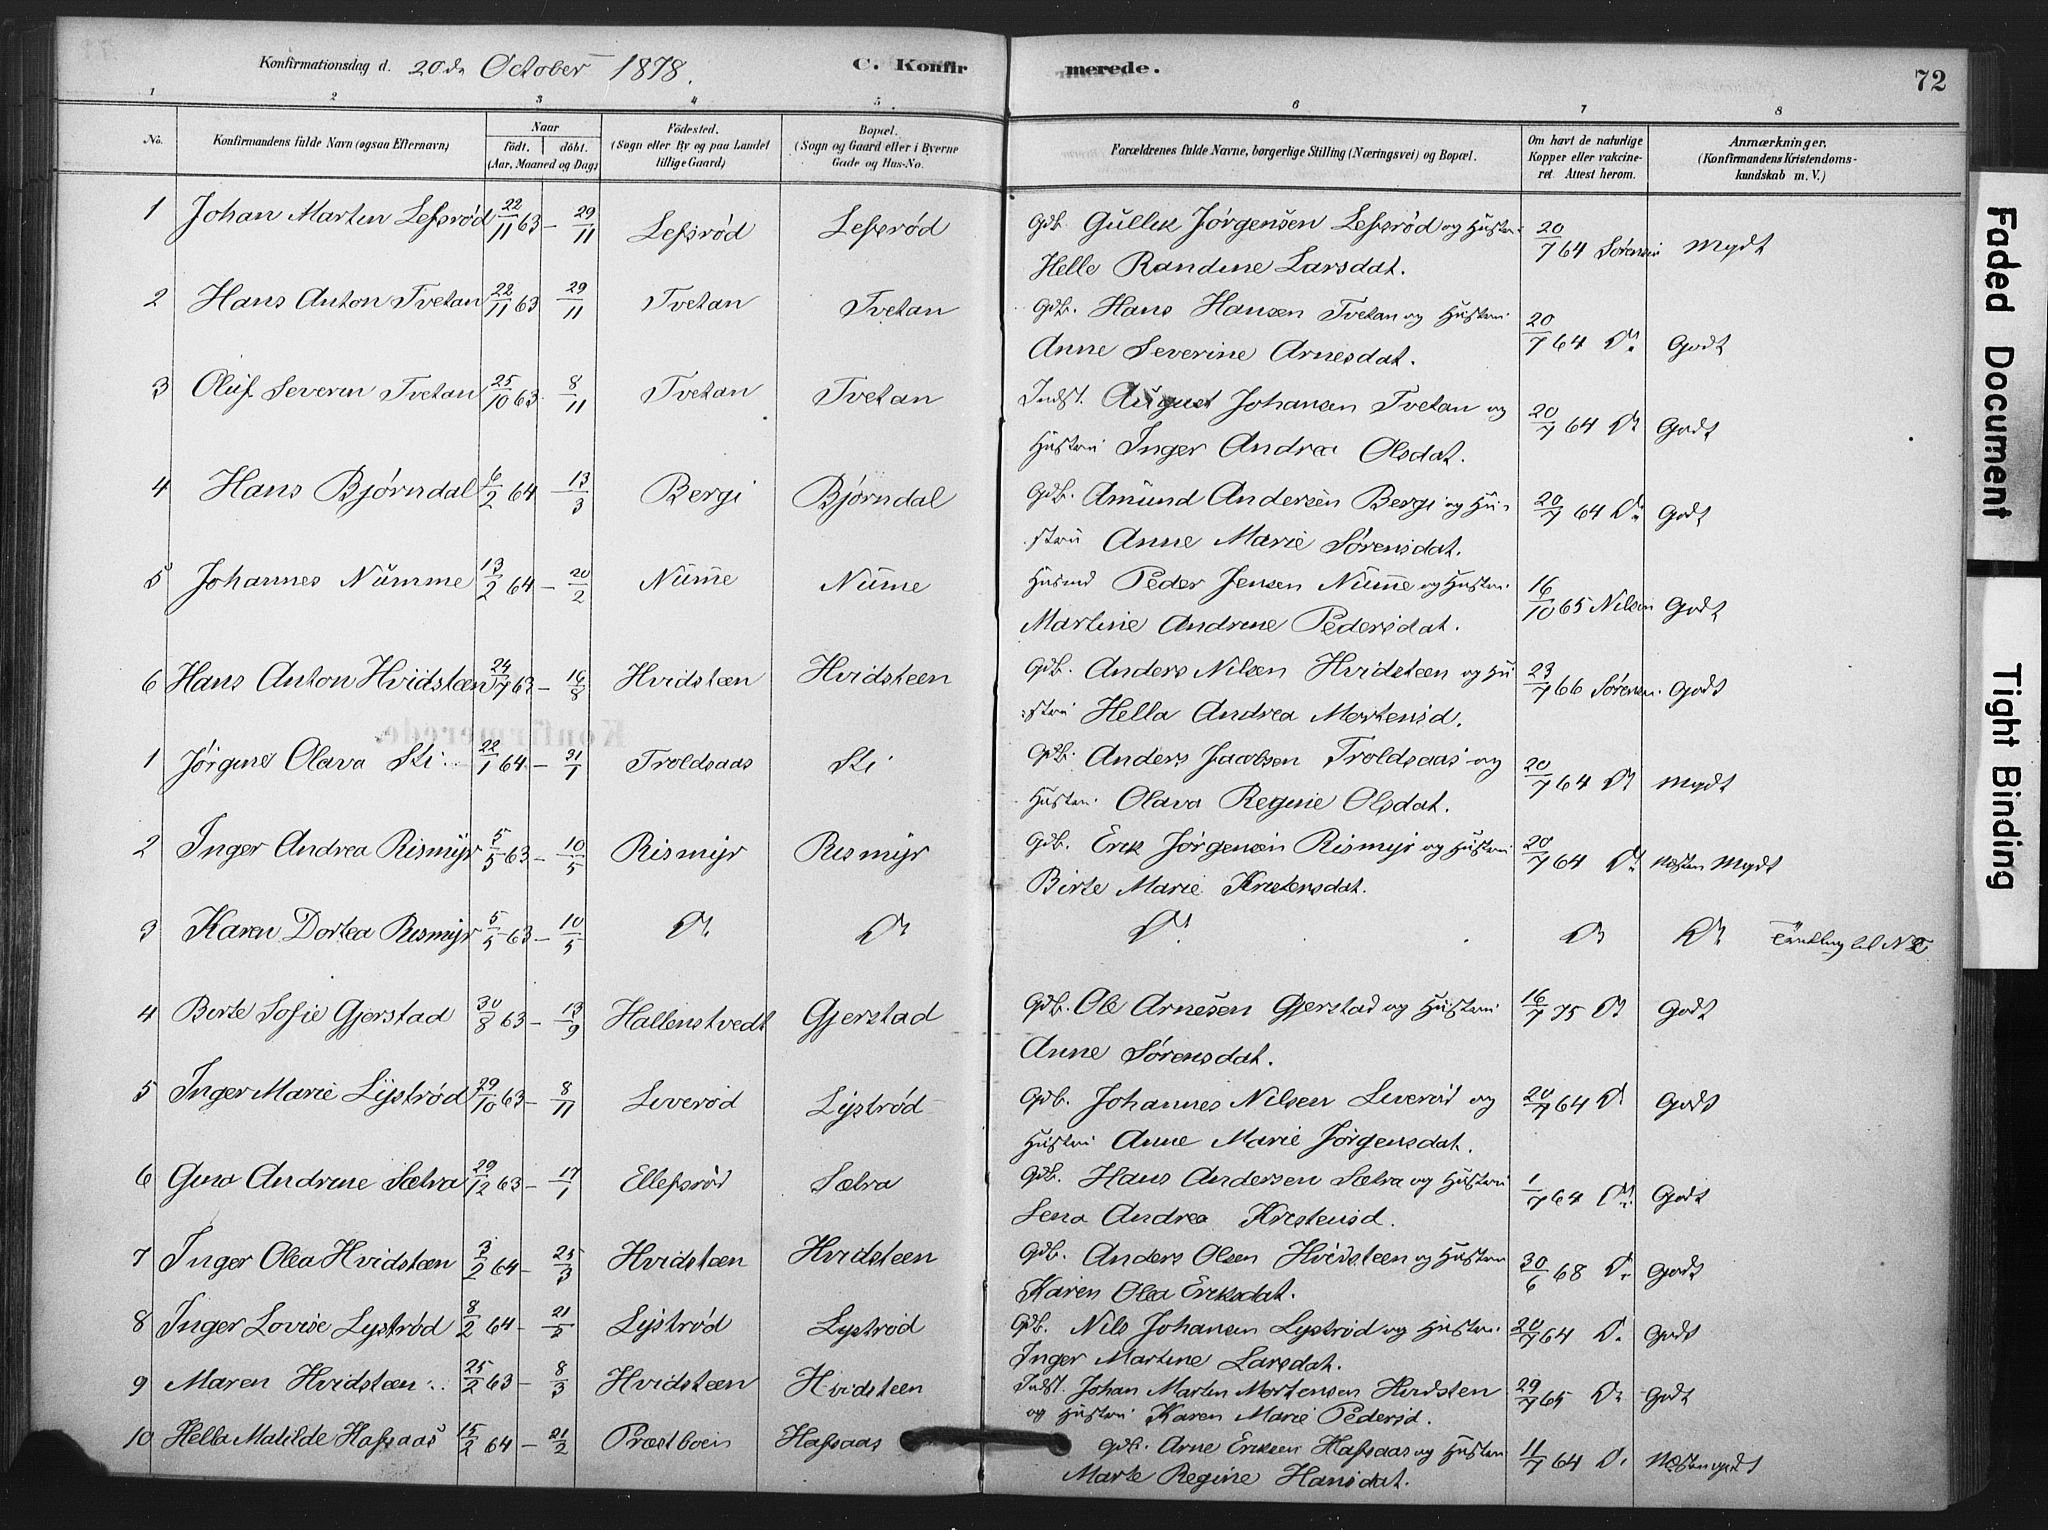 Konfirmationsdag d. 20de October 1878. C. Konfirmerede. 72
1 2 3 4 5. 6 7 8
No. Konfirmandens fulde Navn (ogsaa Efternavn) Naar født. døbt. (Aar, Maaned og Dag) Fødested. (Sogn eller By og paa Landet tillige Gaard) Bopæl. (Sogn og Gaard eller i Byerne Gade og Hus-No. Forældrenes fulde Navne, borgerlige Stilling (Næringsvei) og Bopæl. Om havt de naturlige Kopper eller vakcineret. Attest herom. Anmærkninger. (Konfirmandens Kristendomskundskab m. V.)
1 Johan Martin Lefsrød 22/11 63 – 29/11 Lefsrød Lefsrød Gdb. Gullik Jørgensen Lefsrød og Hustru 20/7 64 Sørensen Mgdt
Helle Randine Larsdat.
2 Hans Anton Tvetan 22/11 63 29/11 Tvetan Tvetan Gdb. Hans Hansen Tvetan og Hustru 20/7 64 Do. Godt
Anne Severine Arnesdat.
3 Oluf Severin Tvetan 25/10 63. 8/11 Tvetan Tvetan Indst. August Johansen Tvetan og 20/7 64 Do Godt
Hustru Inger Andrea Olsdat.
4 Hans Bjørndal 6/2 64 – 13/3 Bergi Bjørndal Gdb. Amund Andersen Bergi og Hu- 20/7 64 Do. Godt
stru Anne Marie Sørensdat.
5 Johannes Numme 13/2 64 – 20/2 Nume Nume Husmd Peder Jensen Nume og Hustru 16/10 65 Nilsen Godt
Martine Andrine Pedersdat.
6 Hans Anton Hvidsteen 24/7 63 – 16/8 Hvidsteen Hvidsteen Gdb. Anders Nilsen Hvidsteen og Hu 23/7 66 Sørensen. Godt
stru Hella Andrea Mortensd.
1 Jørgine Olava Ski 22/1 64 – 31/1 Troldsaas Ski Gdb. Anders Jacobsen Troldsaas og 20/7 64 Do Mgdt
Hustru Olava Regine Olsdat.
2 Inger Andrea Rismyr 5/5 63 – 10/5 Rismyr Rismyr Gdb. Erik Jørgensen Rismyr og Hustru 20/7 64 Do. næsten Mgdt
Birte Marie Kristensdat.
3 Karen Dortea Rismyr 5/5 63 – 10/5 Do. Do Do. Do Do Tvilling til N 2
4 Birte Sofie Gjerstad 30/8 63 – 13/9 Hallenstvedt Gjerstad Gdb. Ole Arnesen Gjerstad og Hustru 16/7 75 Do Godt
Anne Sørensdat.
5 Inger Marie Lystrød 29/10 63 – 8/11 Liverød Lystrød Gdb. Johannes Nilsen Liverød og 20/7 64 Do Godt
Hustru Anne Marie Jørgensdat.
6 Gina Andrine Sætra 29/12 63 – 17/1 Ellefsrød Sætra Gdb. Hans Andersen Sætra og Hustru 1/7 64 Do. Godt
Lena Andrea Kristensd.
7 Inger Olea Hvidsteen 3/2 64 – 25/3 Hvidsteen Hvidsteen Gdb. Anders Olsen Hvidsteen og Hustru 30/6 68 Do. Godt
Karen Olea Eriksdat.
8 Inger Lovise Lystrød 8/2 64 – 21/5 Lystrød Lystrød Gdb. Nils Johansen Lystrød og Hustru 20/7 64 Do. Godt
Inger Martine Larsdat.
9 Maren Hvidsteen 25/2 63 – 8/3 Hvidsteen Hvidsteen Indst. Johan Martin Mortensen Hvidsten 29/7 65 Do Godt
og Hustru Karen Marie Pedersd.
10 Hella Matilde Hafsaas 15/2 64 – 21/2 Præstboen Hafsaas Gdb. Arne Eriksen Hafsaas og Hustru 11/7 64 Do Næsten mgdt
Marte Regine Hansdat.
Faded Document
Tight Binding